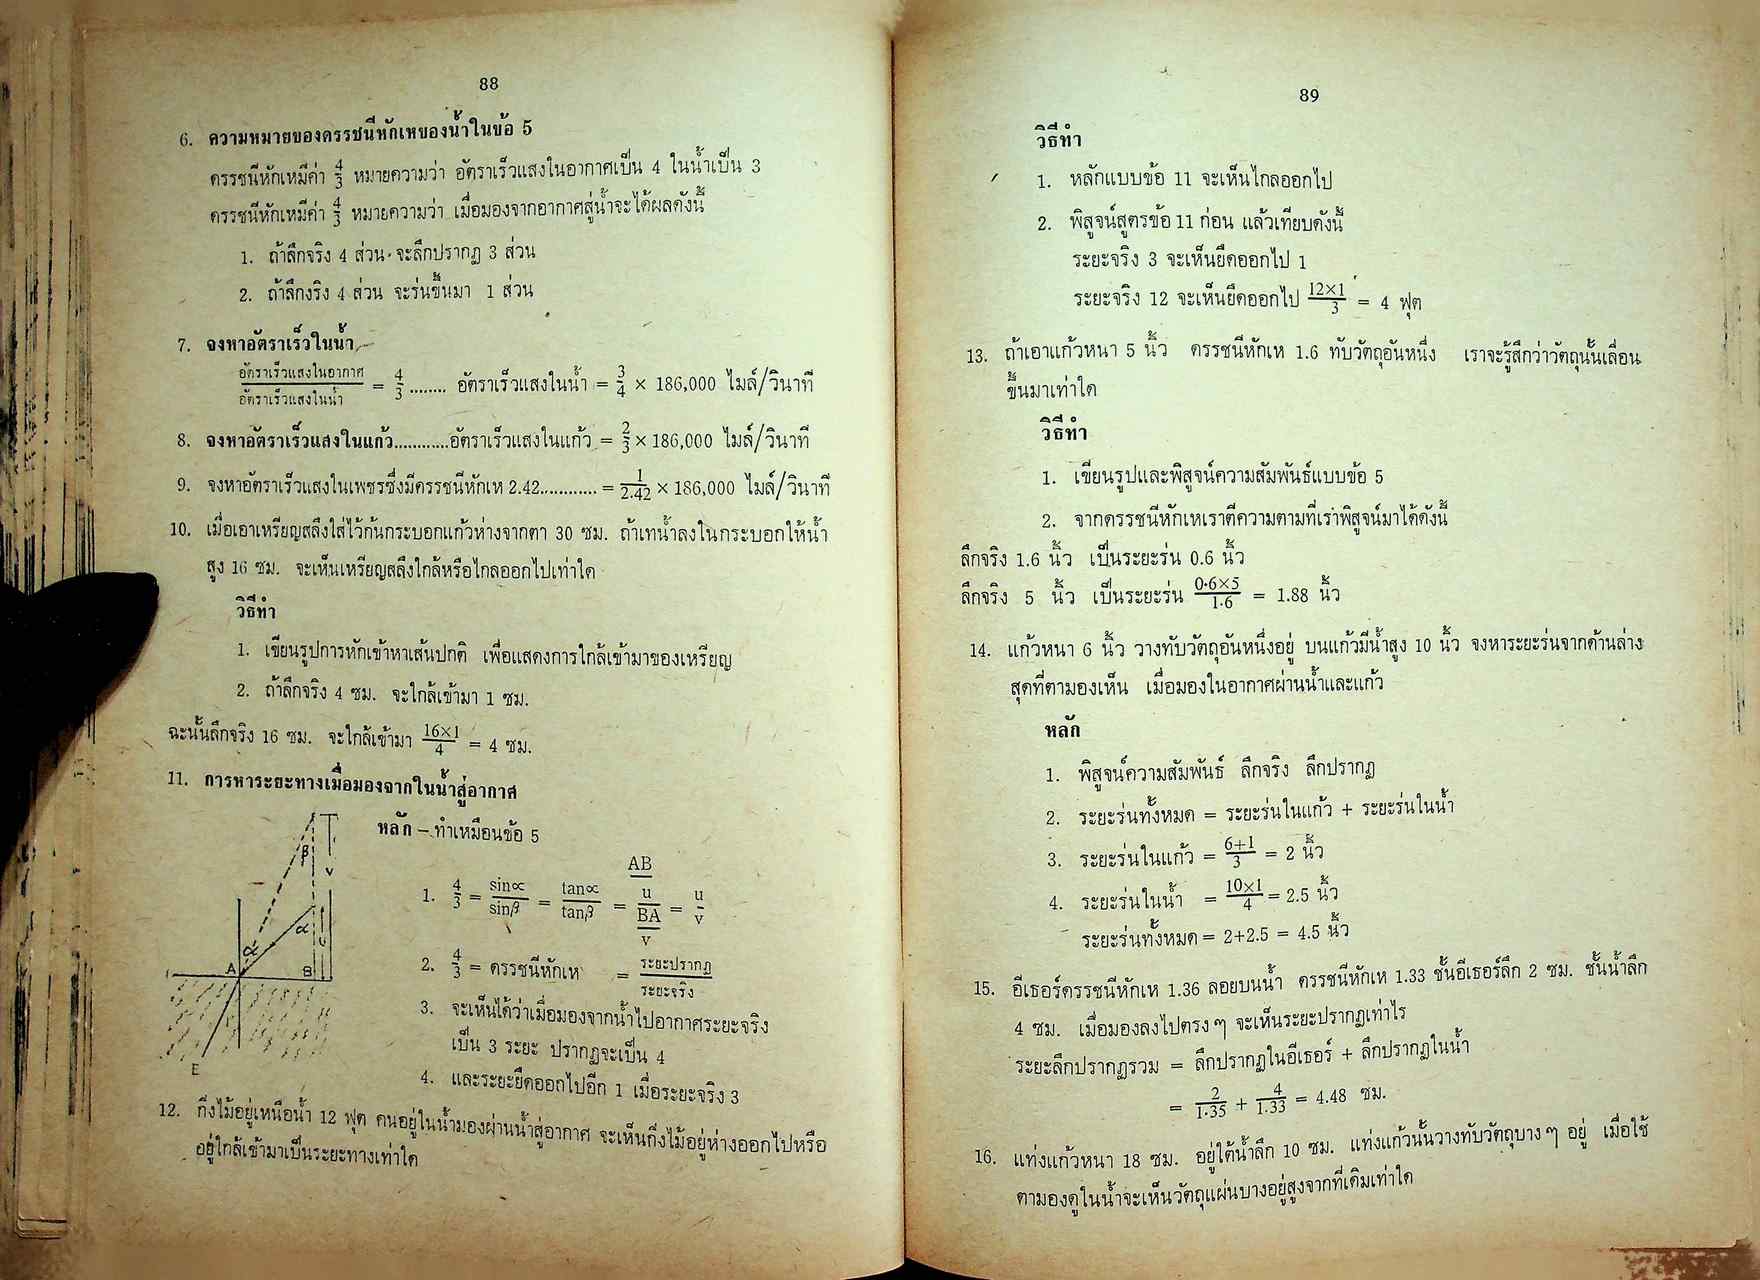 88
6. ความหมายของดรรชนีหักเหของน้ำในข้อ 5
ดรรชนีหักเหมีค่า 4/3 หมายความว่า อัตราเร็วแสงในอากาศเป็น 4 ในน้ำเป็น 3
ดรรชนีหักเหมีค่า 4/3 หมายความว่า เมื่อมองจากอากาศสู่น้ำจะได้ผลดังนี้
1. ถ้าลึกจริง 4 ส่วน จะลึกปรากฏ 3 ส่วน
2. ถ้าลึกงริง 4 ส่วน จะร่นขึ้นมา 1 ส่วน
7. จงหาอัตราเร็วในน้ำ
อัตราเร็วแสงในอากาศ/อัตราเร็วแสงในน้ำ = 4/3 ........ อัตราเร็วแสงในน้ำ = 3/4 × 186,000 ไมล์/วินาที
8. จงหาอัตราเร็วแสงในแก้ว............อัตราเร็วแสงในแก้ว = 2/3 × 186,000 ไมล์/วินาที
9. จงหาอัตราเร็วแสงในเพชรซึ่งมีดรรชนีหักเห 2.42............ = 1/2.42 × 186,000 ไมล์/วินาที
10. เมื่อเอาเหรียญสลึงใส่ไว้ก้นกระบอกแก้วห่างจากตา 30 ซม. ถ้าเทน้ำลงในกระบอกให้น้ำ
สูง 16 ซม. จะเห็นเหรียญสลึงใกล้หรือไกลออกไปเท่าใด
วิธีทำ
1. เขียนรูปการหักเข้าหาเส้นปกติ เพื่อแสดงการใกล้เข้ามาของเหรียญ
2. ถ้าลึกจริง 4 ซม. จะใกล้เข้ามา 1 ซม.
ฉะนั้นลึกจริง 16 ซม. จะใกล้เข้ามา 16×1/4 = 4 ซม.
11. การหาระยะทางเมื่อมองจากในน้ำสู่อากาศ
หลัก – ทำเหมือนข้อ 5
β
v
α
u
α
A
B
E
1. 4/3 = sin∝/sinβ = tan∝/tanβ = AB/u / BA/v = u/v
2. 4/3 = ดรรชนีหักเห = ระยะปรากฏ/ระยะจริง
3. จะเห็นได้ว่าเมื่อมองจากน้ำไปอากาศระยะจริง
เป็น 3 ระยะ ปรากฏจะเป็น 4
4. และระยะยืดออกไปอีก 1 เมื่อระยะจริง 3
12. กิ่งไม้อยู่เหนือน้ำ 12 ฟุต คนอยู่ในน้ำมองผ่านน้ำสู่อากาศ จะเห็นกิ่งไม้อยู่ห่างออกไปหรือ
อยู่ใกล้เข้ามาเป็นระยะทางเท่าใด
89
วิธีทำ
1. หลักแบบข้อ 11 จะเห็นไกลออกไป
2. พิสูจน์สูตรข้อ 11 ก่อน แล้วเทียบดังนี้
ระยะจริง 3 จะเห็นยืดออกไป 1
ระยะจริง 12 จะเห็นยืดออกไป 12×1/3 = 4 ฟุต
13. ถ้าเอาแก้วหนา 5 นิ้ว ดรรชนีหักเห 1.6 ทับวัตถุอันหนึ่ง เราจะรู้สึกว่าวัตถุนั้นเลื่อน
ขึ้นมาเท่าใด
วิธีทำ
1. เขียนรูปและพิสูจน์ความสัมพันธ์แบบข้อ 5
2. จากดรรชนีหักเหเราตีความตามที่เราพิสูจน์มาได้ดังนี้
ลึกจริง 1.6 นิ้ว เป็นระยะร่น 0.6 นิ้ว
ลึกจริง 5 นิ้ว เป็นระยะร่น 0·6×5/1·6 = 1.88 นิ้ว
14. แก้วหนา 6 นิ้ว วางทับวัตถุอันหนึ่งอยู่ บนแก้วมีน้ำสูง 10 นิ้ว จงหาระยะร่นจากด้านล่าง
สุดที่ตามองเห็น เมื่อมองในอากาศผ่านน้ำและแก้ว
หลัก
1. พิสูจน์ความสัมพันธ์ ลึกจริง ลึกปรากฏ
2. ระยะร่นทั้งหมด = ระยะร่นในแก้ว + ระยะร่นในน้ำ
3. ระยะร่นในแก้ว = 6+1/3 = 2 นิ้ว
4. ระยะร่นในน้ำ = 10×1/4 = 2.5 นิ้ว
ระยะร่นทั้งหมด = 2+2.5 = 4.5 นิ้ว
15. อีเธอร์ดรรชนีหักเห 1.36 ลอยบนน้ำ ดรรชนีหักเห 1.33 ชั้นอีเธอร์ลึก 2 ซม. ชั้นน้ำลึก
4 ซม. เมื่อมองลงไปตรงๆ จะเห็นระยะปรากฏเท่าไร
ระยะลึกปรากฏรวม = ลึกปรากฏในอีเธอร์ + ลึกปรากฏในน้ำ
= 2/1·35 + 4/1.33 = 4.48 ซม.
16. แท่งแก้วหนา 18 ซม. อยู่ใต้น้ำลึก 10 ซม. แท่งแก้วนั้นวางทับวัตถุบางๆ อยู่ เมื่อใช้
ตามองดูในน้ำจะเห็นวัตถุแผ่นบางอยู่สูงจากที่เดิมเท่าใด